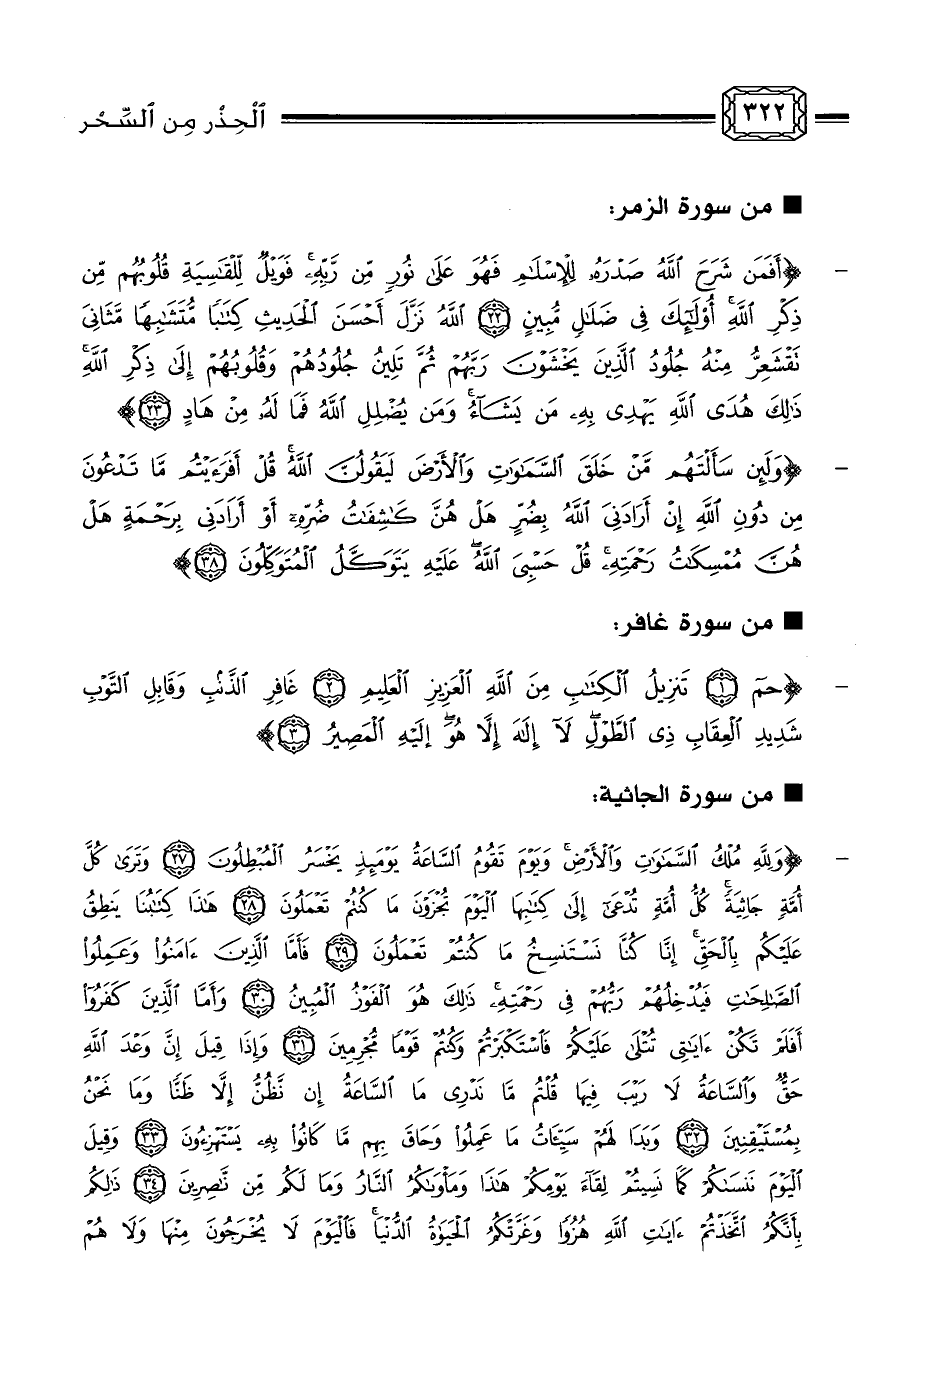 ٣٢٢ ٱلْحِذْر مِن ٱلسِّحْر
■ من سورة الزمر:
- ﴿أَفَمَن شَرَحَ ٱللَّهُ صَدْرَهُۥ لِلْإِسْلَٰمِ فَهُوَ عَلَىٰ نُورٍ مِّن رَّبِّهِۦۚ فَوَيْلٌ لِّلْقَٰسِيَةِ قُلُوبُهُم مِّن
ذِكْرِ ٱللَّهِۚ أُو۟لَٰٓئِكَ فِى ضَلَٰلٍ مُّبِينٍ ﴿٢٢﴾ ٱللَّهُ نَزَّلَ أَحْسَنَ ٱلْحَدِيثِ كِتَٰبًا مُّتَشَٰبِهًا مَّثَانِىَ
تَقْشَعِرُّ مِنْهُ جُلُودُ ٱلَّذِينَ يَخْشَوْنَ رَبَّهُمْ ثُمَّ تَلِينُ جُلُودُهُمْ وَقُلُوبُهُمْ إِلَىٰ ذِكْرِ ٱللَّهِۚ
ذَٰلِكَ هُدَى ٱللَّهِ يَهْدِى بِهِۦ مَن يَشَآءُۚ وَمَن يُضْلِلِ ٱللَّهُ فَمَا لَهُۥ مِنْ هَادٍ ﴿٢٣﴾﴾
- ﴿وَلَئِن سَأَلْتَهُم مَّنْ خَلَقَ ٱلسَّمَٰوَٰتِ وَٱلْأَرْضَ لَيَقُولُنَّ ٱللَّهُۚ قُلْ أَفَرَءَيْتُم مَّا تَدْعُونَ
مِن دُونِ ٱللَّهِ إِنْ أَرَادَنِىَ ٱللَّهُ بِضُرٍّ هَلْ هُنَّ كَٰشِفَٰتُ ضُرِّهِۦٓ أَوْ أَرَادَنِى بِرَحْمَةٍ هَلْ
هُنَّ مُمْسِكَٰتُ رَحْمَتِهِۦۚ قُلْ حَسْبِىَ ٱللَّهُۖ عَلَيْهِ يَتَوَكَّلُ ٱلْمُتَوَكِّلُونَ ﴿٣٨﴾﴾
■ من سورة غافر:
- ﴿حمٓ ﴿١﴾ تَنزِيلُ ٱلْكِتَٰبِ مِنَ ٱللَّهِ ٱلْعَزِيزِ ٱلْعَلِيمِ ﴿٢﴾ غَافِرِ ٱلذَّنۢبِ وَقَابِلِ ٱلتَّوْبِ
شَدِيدِ ٱلْعِقَابِ ذِى ٱلطَّوْلِۖ لَآ إِلَٰهَ إِلَّا هُوَۖ إِلَيْهِ ٱلْمَصِيرُ ﴿٣﴾﴾
■ من سورة الجاثية:
- ﴿وَلِلَّهِ مُلْكُ ٱلسَّمَٰوَٰتِ وَٱلْأَرْضِۚ وَيَوْمَ تَقُومُ ٱلسَّاعَةُ يَوْمَئِذٍ يَخْسَرُ ٱلْمُبْطِلُونَ ﴿٢٧﴾ وَتَرَىٰ كُلَّ
أُمَّةٍ جَاثِيَةًۚ كُلُّ أُمَّةٍ تُدْعَىٰٓ إِلَىٰ كِتَٰبِهَا ٱلْيَوْمَ تُجْزَوْنَ مَا كُنتُمْ تَعْمَلُونَ ﴿٢٨﴾ هَٰذَا كِتَٰبُنَا يَنطِقُ
عَلَيْكُم بِٱلْحَقِّۚ إِنَّا كُنَّا نَسْتَنسِخُ مَا كُنتُمْ تَعْمَلُونَ ﴿٢٩﴾ فَأَمَّا ٱلَّذِينَ ءَامَنُوا۟ وَعَمِلُوا۟
ٱلصَّٰلِحَٰتِ فَيُدْخِلُهُمْ رَبُّهُمْ فِى رَحْمَتِهِۦۚ ذَٰلِكَ هُوَ ٱلْفَوْزُ ٱلْمُبِينُ ﴿٣٠﴾ وَأَمَّا ٱلَّذِينَ كَفَرُوٓا۟
أَفَلَمْ تَكُنْ ءَايَٰتِى تُتْلَىٰ عَلَيْكُمْ فَٱسْتَكْبَرْتُمْ وَكُنتُمْ قَوْمًا مُّجْرِمِينَ ﴿٣١﴾ وَإِذَا قِيلَ إِنَّ وَعْدَ ٱللَّهِ
حَقٌّ وَٱلسَّاعَةُ لَا رَيْبَ فِيهَا قُلْتُم مَّا نَدْرِى مَا ٱلسَّاعَةُ إِن نَّظُنُّ إِلَّا ظَنًّا وَمَا نَحْنُ
بِمُسْتَيْقِنِينَ ﴿٣٢﴾ وَبَدَا لَهُمْ سَيِّـَٔاتُ مَا عَمِلُوا۟ وَحَاقَ بِهِم مَّا كَانُوا۟ بِهِۦ يَسْتَهْزِءُونَ ﴿٣٣﴾ وَقِيلَ
ٱلْيَوْمَ نَنسَىٰكُمْ كَمَا نَسِيتُمْ لِقَآءَ يَوْمِكُمْ هَٰذَا وَمَأْوَىٰكُمُ ٱلنَّارُ وَمَا لَكُم مِّن نَّٰصِرِينَ ﴿٣٤﴾ ذَٰلِكُم
بِأَنَّكُمُ ٱتَّخَذْتُمْ ءَايَٰتِ ٱللَّهِ هُزُوًا وَغَرَّتْكُمُ ٱلْحَيَوٰةُ ٱلدُّنْيَاۚ فَٱلْيَوْمَ لَا يُخْرَجُونَ مِنْهَا وَلَا هُمْ